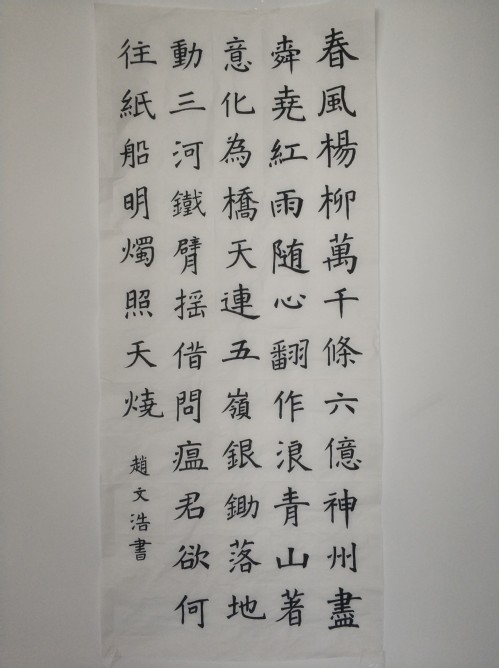 春風楊柳萬千條六億神州盡
舜堯紅雨随心翻作浪青山著
意化為橋天連五嶺銀鋤落地
動三河鐵臂摇借問瘟君欲何
往紙船明燭照天燒
趙文浩書